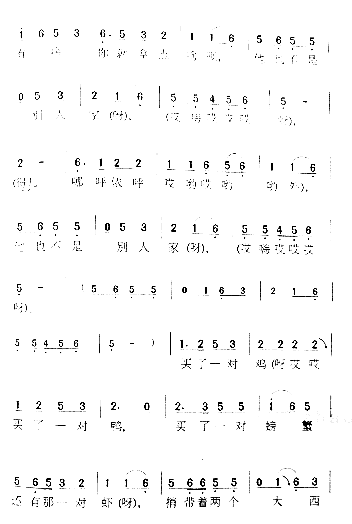 1 6 5 3 6. 5 3 2 1 1 6 5 6 5 5
有 你 就 拿 他 也 不 是
0 5 3 2 1 6 5 5 4 5 6 5 -
别 人 家(呀), (哎 嗬 哎 哎 哎 呀),
2 - 6. 1 2 2 1 1 6 5 6 1 1 6
哪 呼 依 呼 哎 哟 哎 哟 哟 外),
5 6 5 5 0 5 3 2 1 6 5 5 4 5 6
他 也 不 是 别 人 家(呀), (哎 嗬 哎 哎 哎
5 - 5 6 5 5 0 5 3 2 1 6
呀),
5 5 4 5 6 5 - ) 1. 2 5 3 2 1 2 2
买 了 一 对 鸡(呀 哎 哎
1 2 5 3 2. 0 2. 3 5 5 1 6 5
买 了 一 对 鸭, 买 了 一 对 螃 蟹
5 6 5 3 2 1 6 5 5 6 5 3 2 0 1 6
还 有 那 一 对 虾(呀), 捎 带 着 两 个 大 西